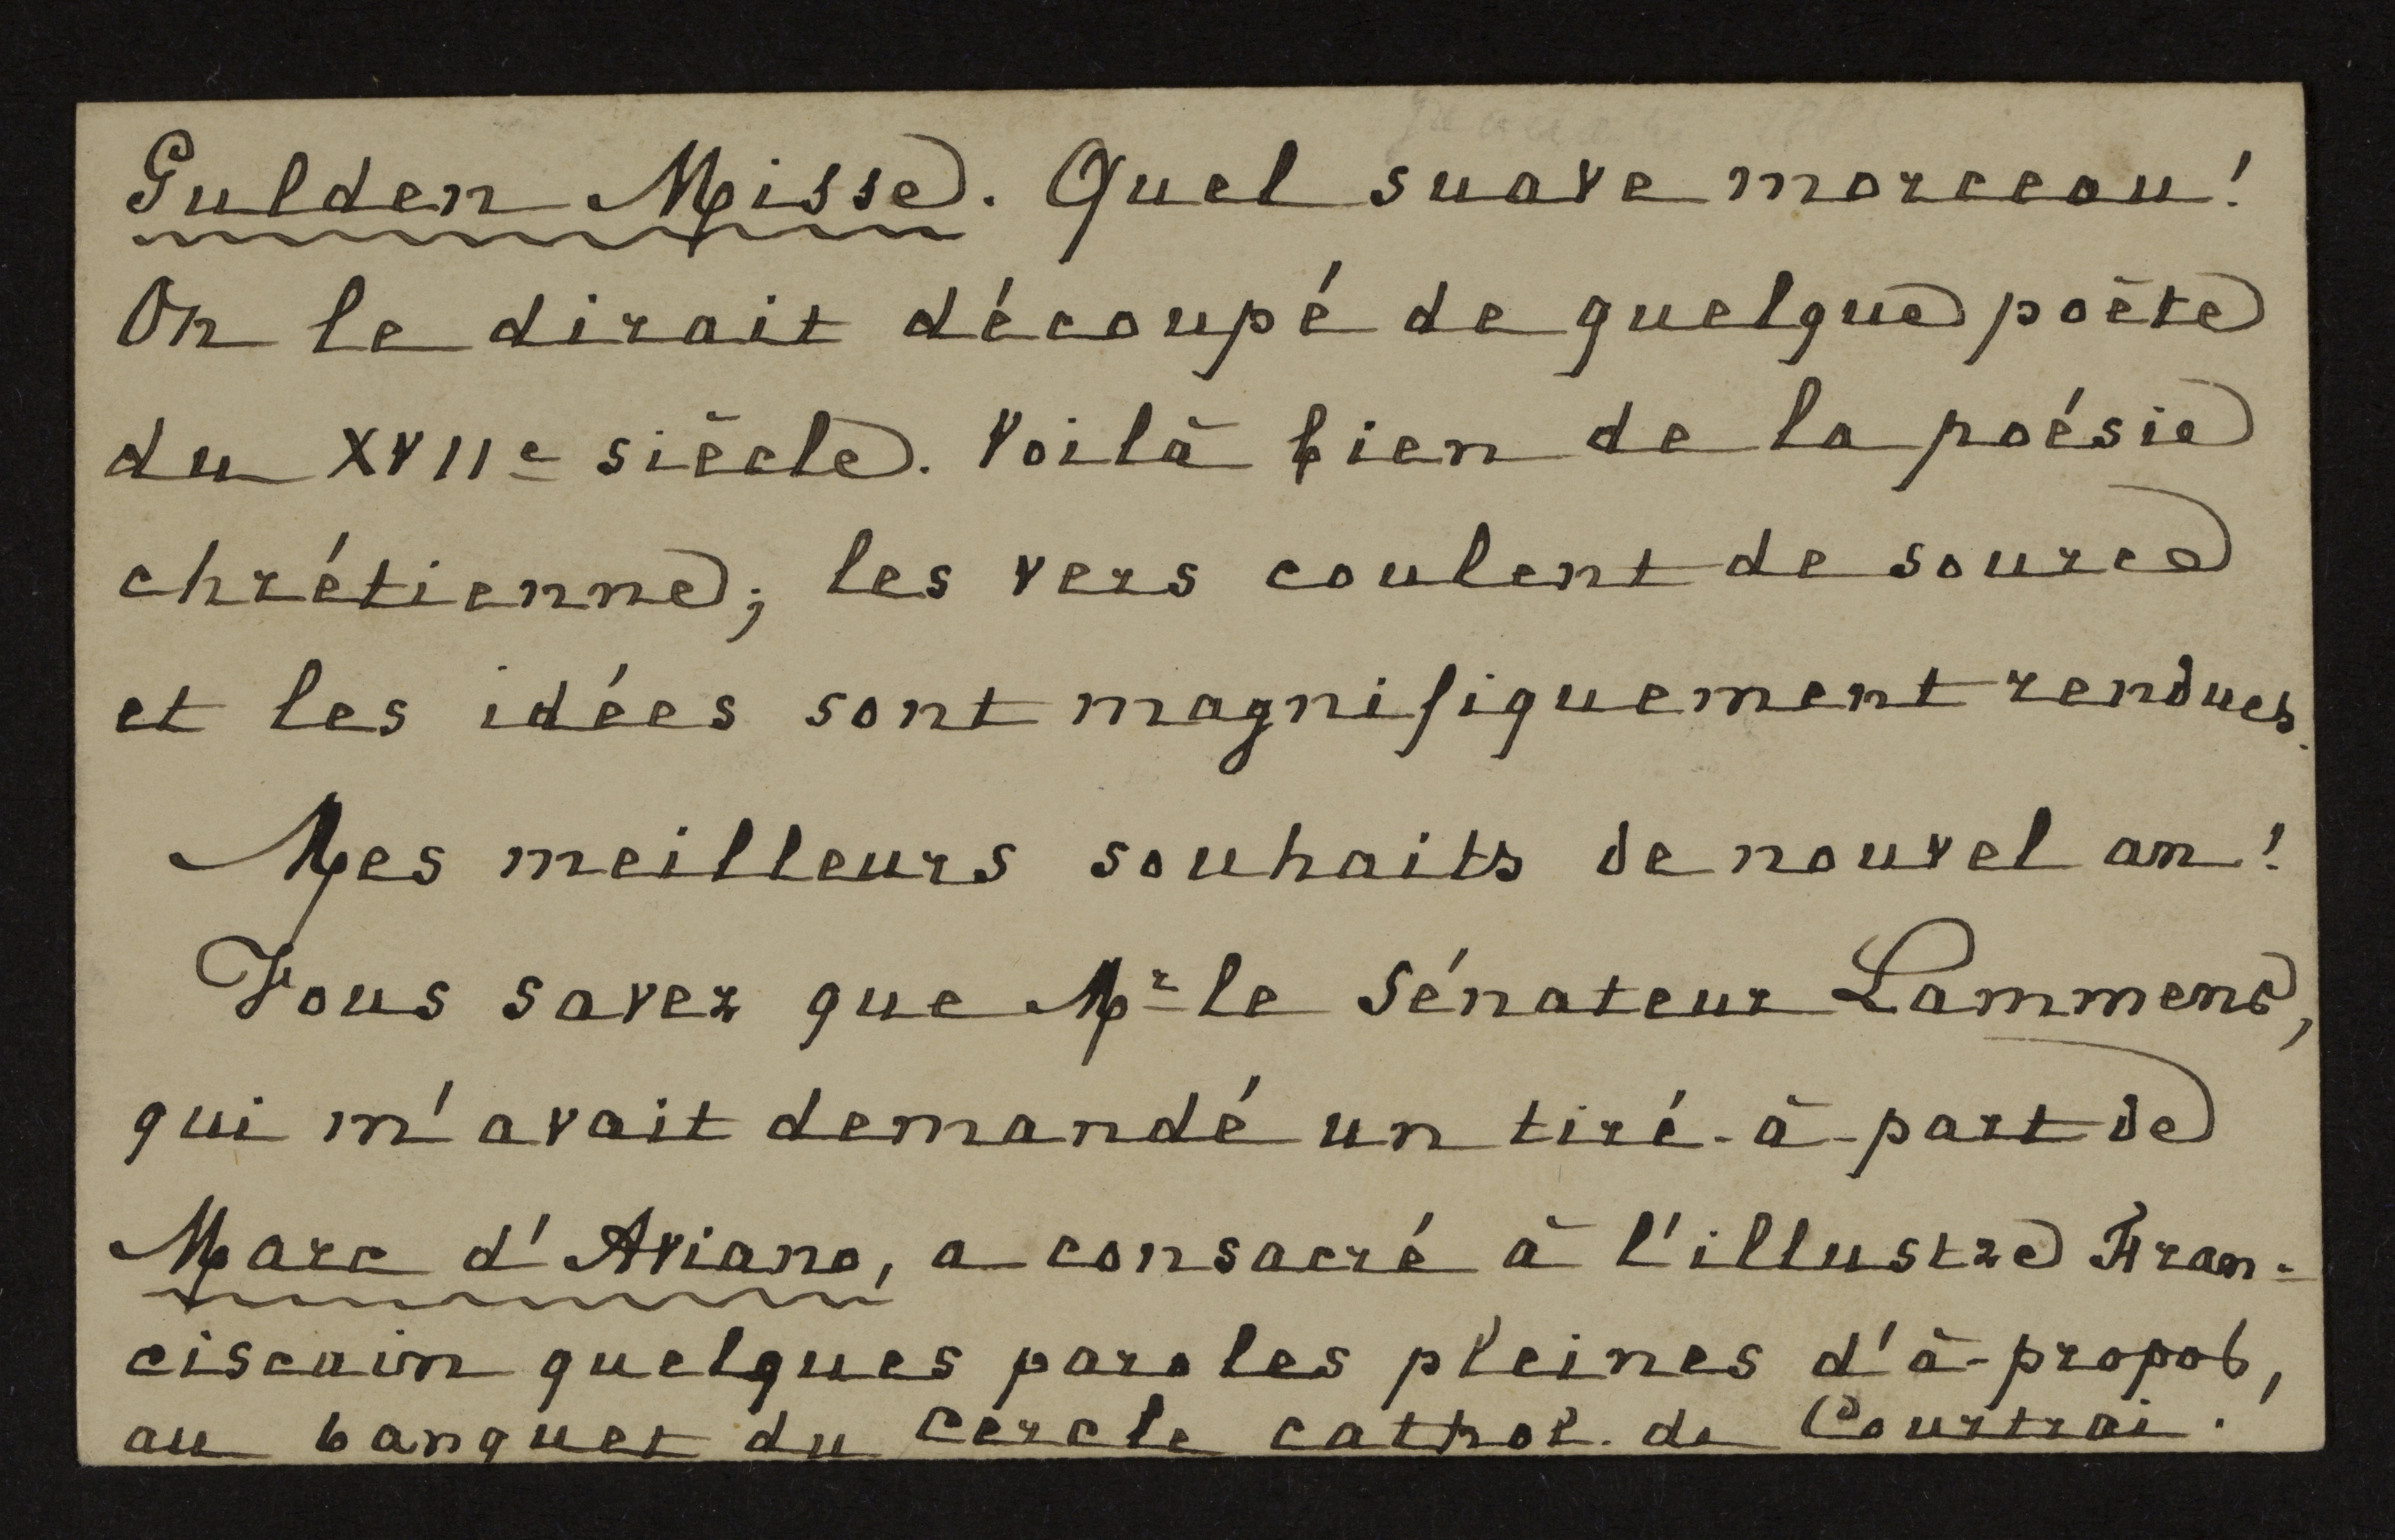 Gulden Misse. Quel suave morceau!
On le dirait découpé de quelque poète
du XVIIe siècle. Voilà bien de la poésie
chrétienne; les vers coulent de source
et les idées sont magnifiquement rendues.
Mes meilleurs souhaits de nouvel an!
Vous savez que Mr le Sénateur Lammens,
qui m'avait demandé un tiré-à-part de
Marc d'Aviano, a consacré à l'illustre Fran-
ciscain quelques paroles pleines d'à-propos,
au banquet du Cercle cathol. de Courtrai.